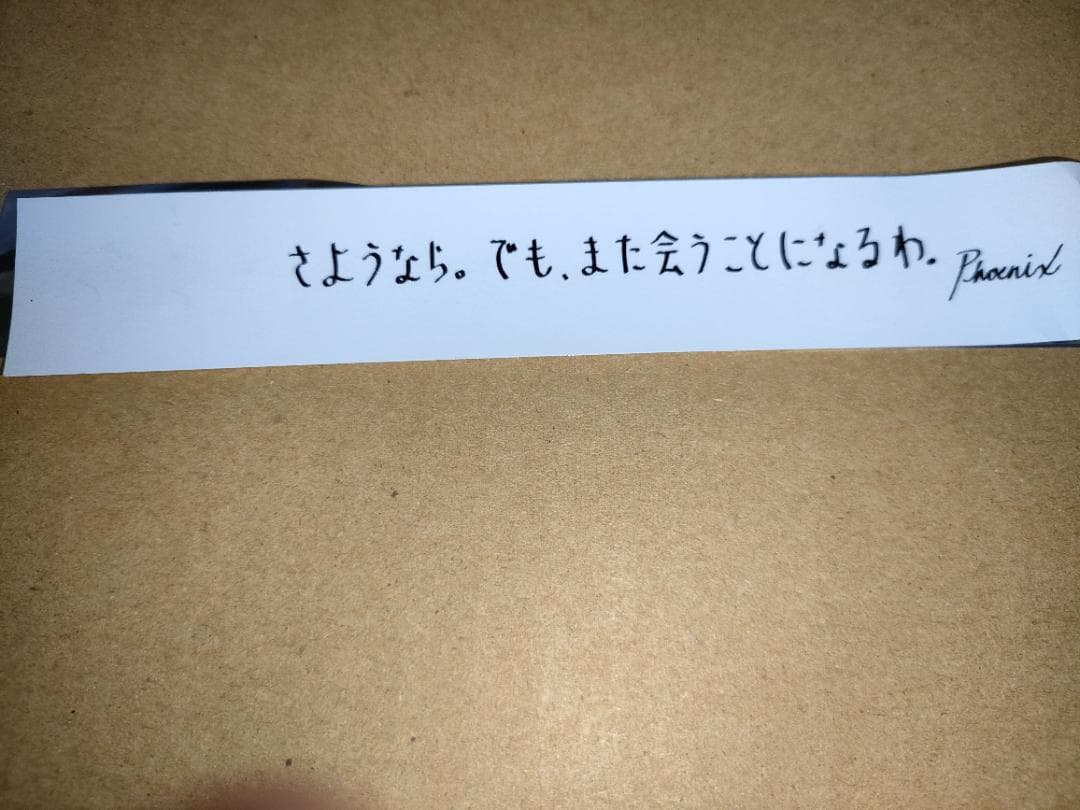 さようなら。でも、また会うことになるわ. Phoenix